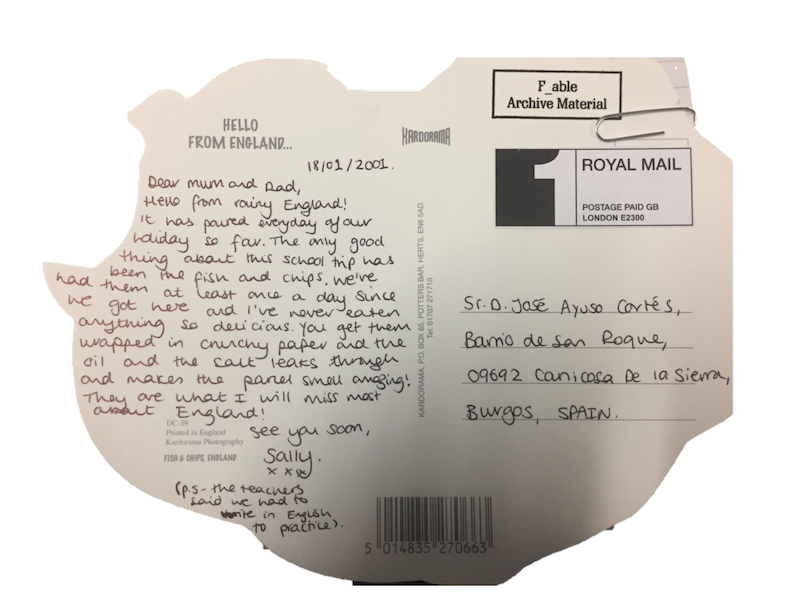 F_able
Archive Material
HELLO
FROM ENGLAND...
KARDORAMA
1
ROYAL MAIL
POSTAGE PAID GB
LONDON E2300
18/01/2001.
Dear Mum and Dad,
Hello from rainy England!
It has poured everyday of our
holiday so far. The only good
thing about this school trip has
been the fish and chips. We've
had them at least once a day since
we got here and I've never eaten
anything so delicious. You get them
wrapped in crunchy paper and the
oil and the salt leaks through
and makes the parcel smell amazing!
They are what I will miss most
about England!
See you soon,
Sally.
x x x
(p.s - the teachers
said we had to
write in English
to practice).
DC-39
Printed in England
Kardorama Photography
FISH & CHIPS, ENGLAND
KARDORAMA, P.O. BOX 85, POTTERS BAR, HERTS, EN6 5AD.
Tel: 01707 271710
Sr. D. José Ayuso Cortés,
Barrio de San Roque,
09692 Canicosa De la Sierra,
Burgos, SPAIN.
5 014835 270663